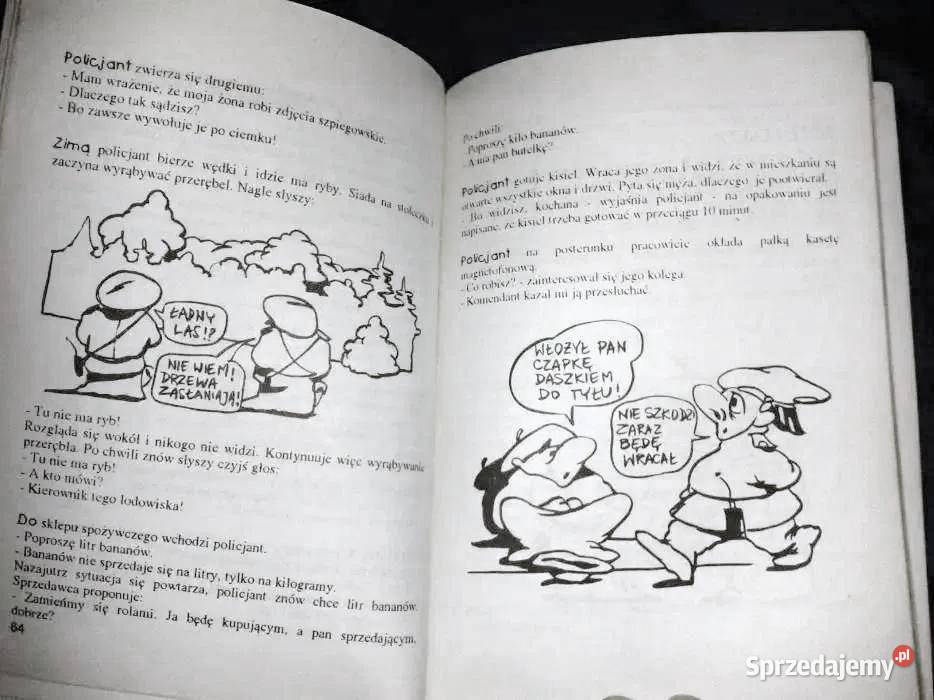 Policjant zwierza się drugiemu:
- Mam wrażenie, że moja żona robi zdjęcia szpiegowskie.
- Dlaczego tak sądzisz?
- Bo zawsze wywołuje je po ciemku!
Zimą policjant bierze wędki i idzie ma ryby. Siada na stołeczku i
zaczyna wyrąbywać przerębel. Nagle słyszy:
ŁADNY
LAS!?
NIE WIEM!
DRZEWA
ZASŁANIAJĄ!
- Tu nie ma ryb!
Rozgląda się wokół i nikogo nie widzi. Kontynuuje więc wyrąbywanie
przerębla. Po chwili znów słyszy czyjś głos:
- Tu nie ma ryb!
- A kto mówi?
- Kierownik tego lodowiska!
Do sklepu spożywczego wchodzi policjant.
- Poproszę litr bananów.
- Bananów nie sprzedaje się na litry, tylko na kilogramy.
Nazajutrz sytuacja się powtarza, policjant znów chce litr bananów.
Sprzedawca proponuje:
- Zamieńmy się rolami. Ja będę kupującym, a pan sprzedającym,
dobrze?
64
Po chwili:
- Poproszę kilo bananów.
- A ma pan butelkę?
Policjant gotuje kisiel. Wraca jego żona i widzi, że w mieszkaniu są
otwarte wszystkie okna i drzwi. Pyta się męża, dlaczego je pootwierał.
- Bo widzisz, kochana - wyjaśnia policjant - na opakowaniu jest
napisane, że kisiel trzeba gotować w przeciągu 10 minut.
Policjant na posterunku pracowicie okłada pałką kasetę
magnetofonową.
- Co robisz? - zainteresował się jego kolega.
- Komendant kazał mi ją przesłuchać.
WŁOŻYŁ PAN
CZAPKĘ
DASZKIEM
DO TYŁU!
NIE SZKODZI
ZARAZ
BĘDĘ
WRACAŁ
Sprzedajemy.pl